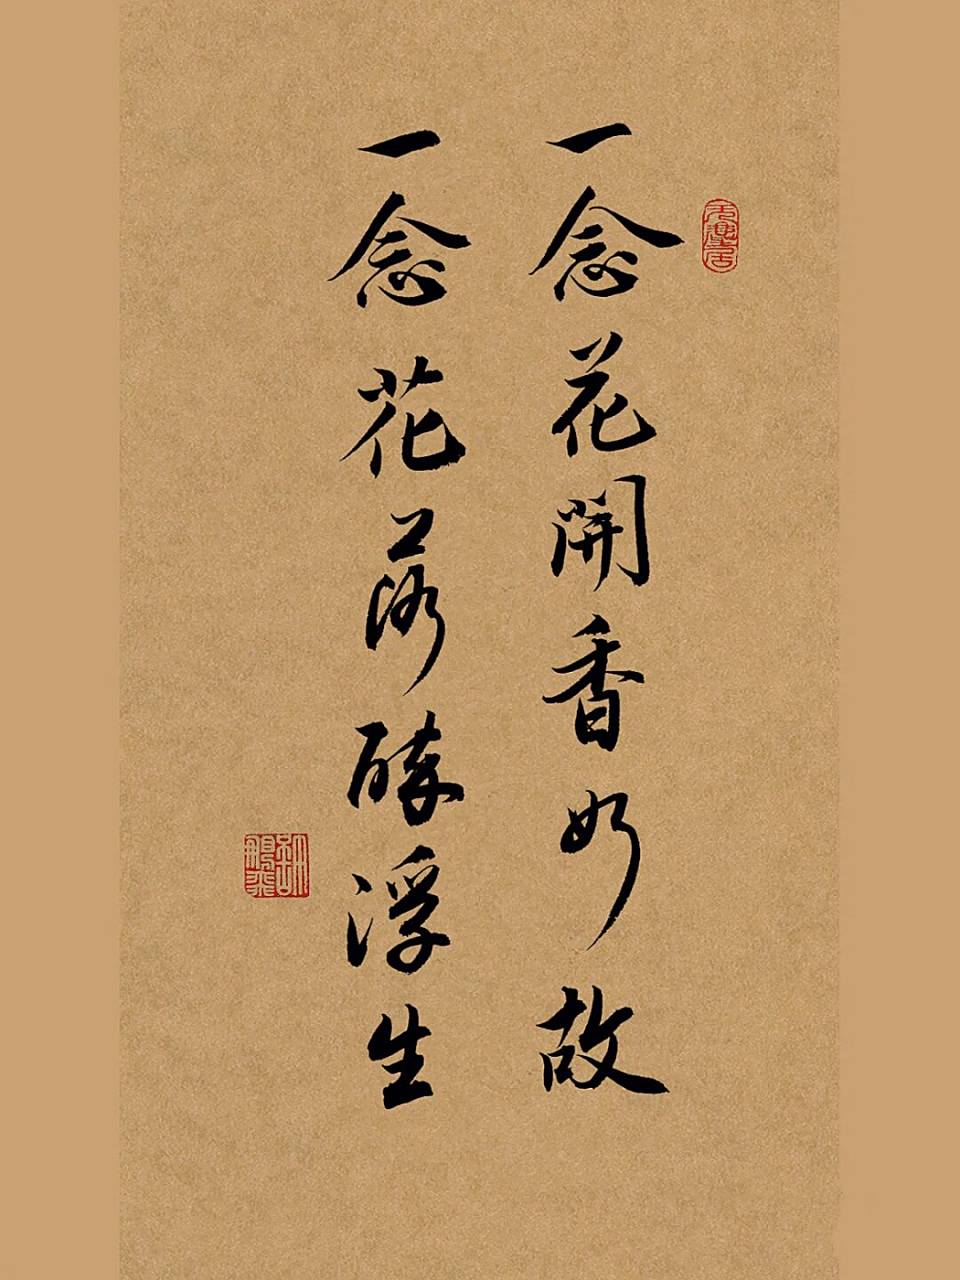 一念花開香如故
一念花落醉浮生